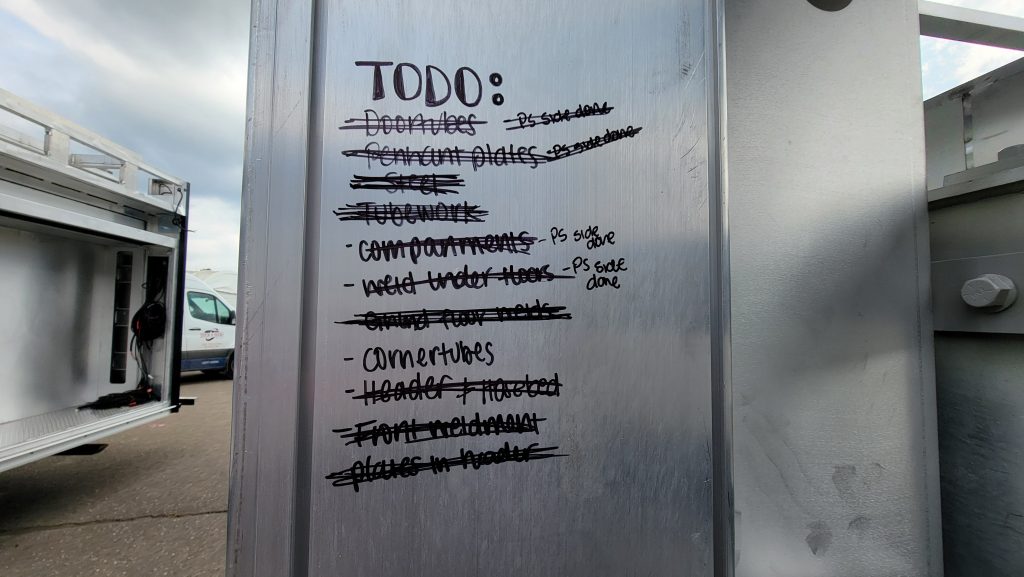 TODO:
Doortubes - PS side done
Pennant plates - PS side done
- Steel
- Tubework
- compartments - PS side done
- weld under floors - PS side done
- Grind floor welds
- cornertubes
- Header + Hosebed
- Front weldment
- plates in header